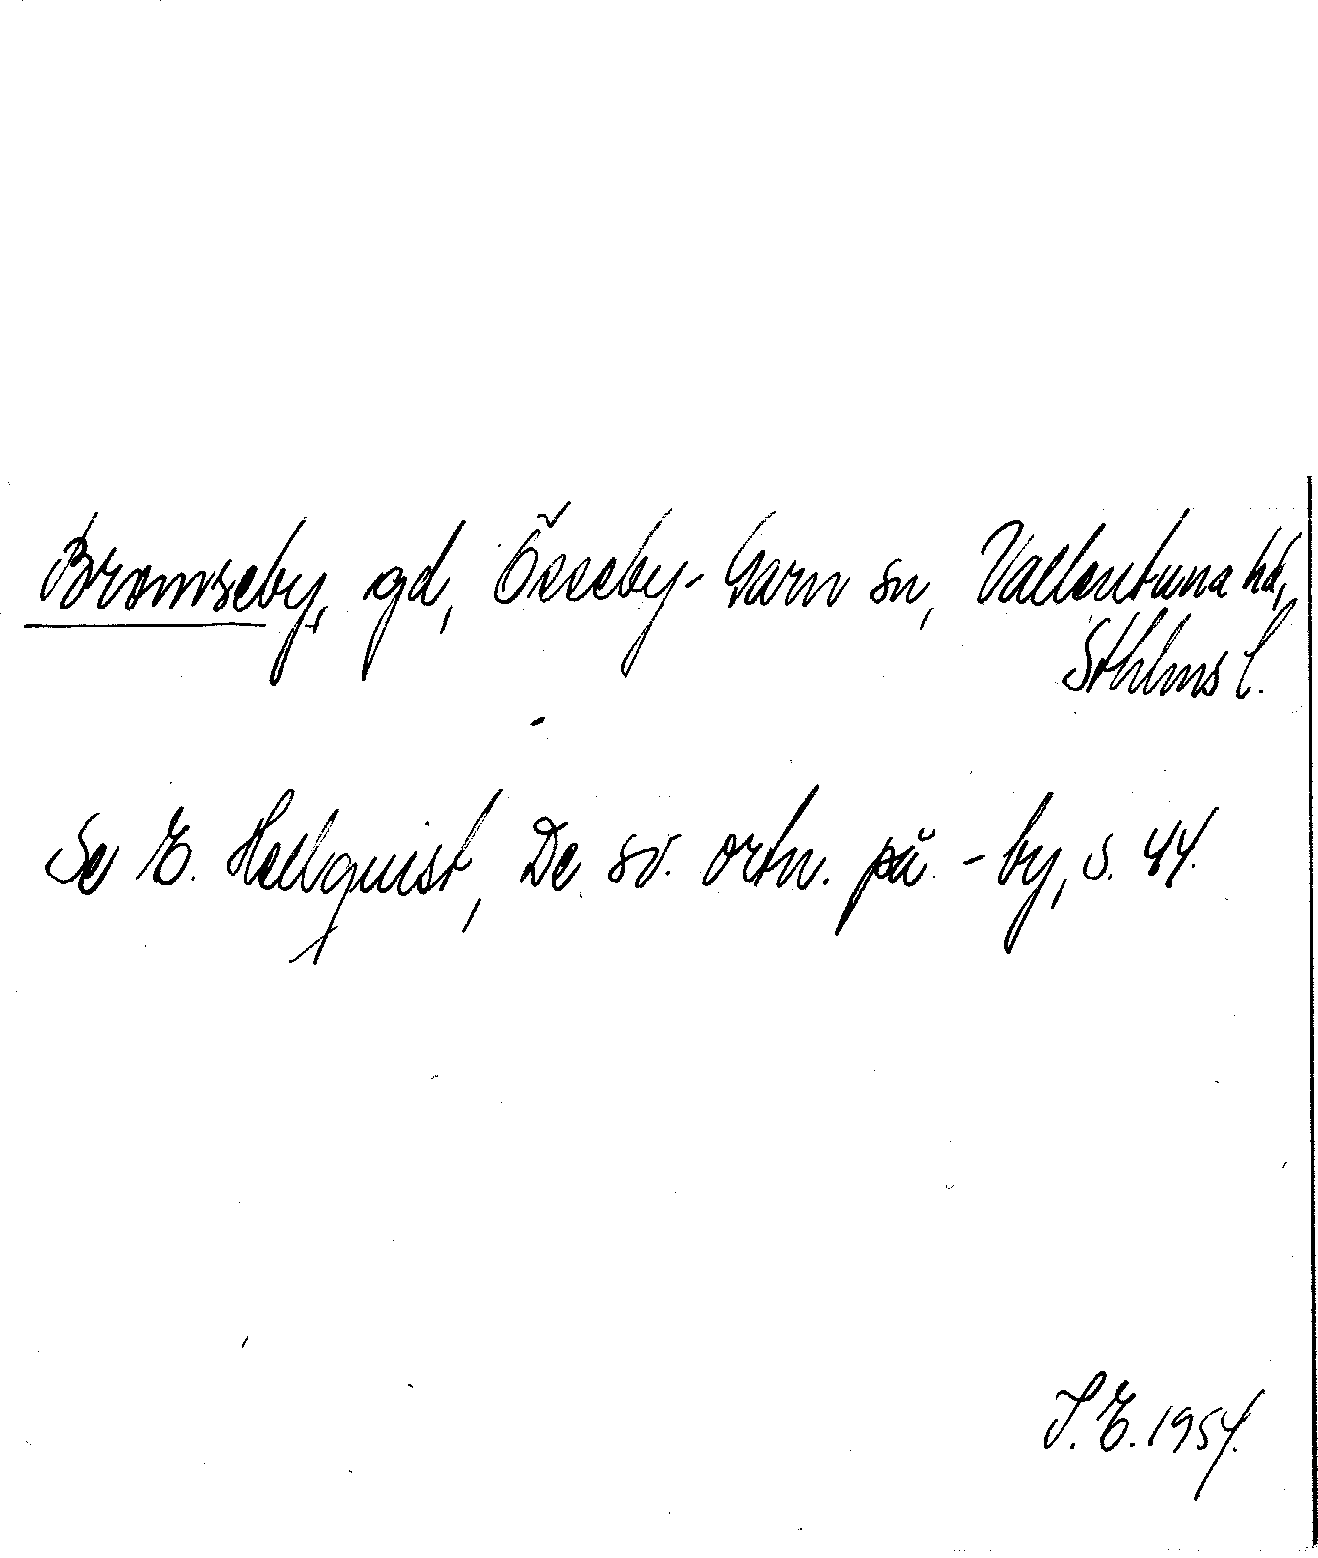 Bromseby, gd, Össeby-Garn sn, Vallentuna hd,
Sthlms l.
Se E. Hellquist, De sv. ortn. på -by, s. 44.
S.E. 1954.